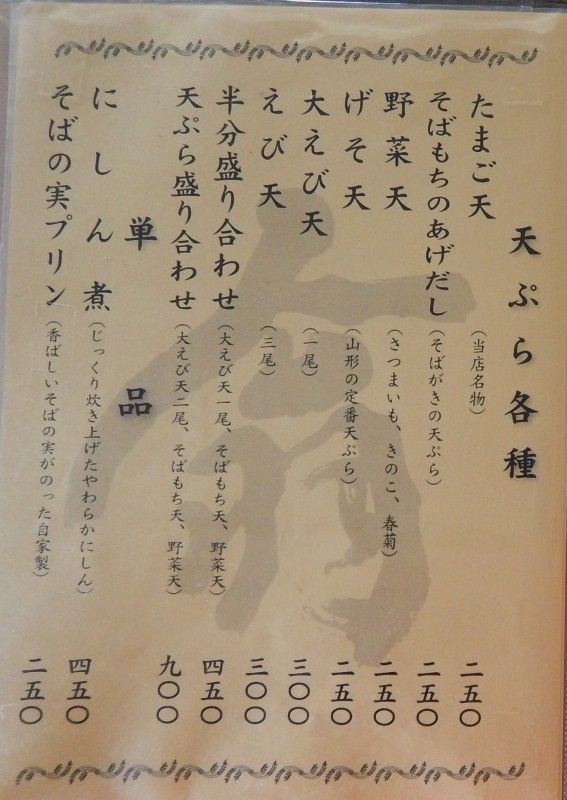 天ぷら各種
たまご天（当店名物）二五〇
そばもちのあげだし（そばがきの天ぷら）二五〇
野菜天（さつまいも、きのこ、春菊）二五〇
げそ天（山形の定番天ぷら）二五〇
大えび天（一尾）三〇〇
えび天（三尾）三〇〇
半分盛り合わせ（大えび天一尾、そばもち天、野菜天）四五〇
天ぷら盛り合わせ（大えび天二尾、そばもち天、野菜天）九〇〇
単品
にしん煮（じっくり炊き上げたやわらかにしん）四五〇
そばの実プリン（香ばしいそばの実がのった自家製）二五〇